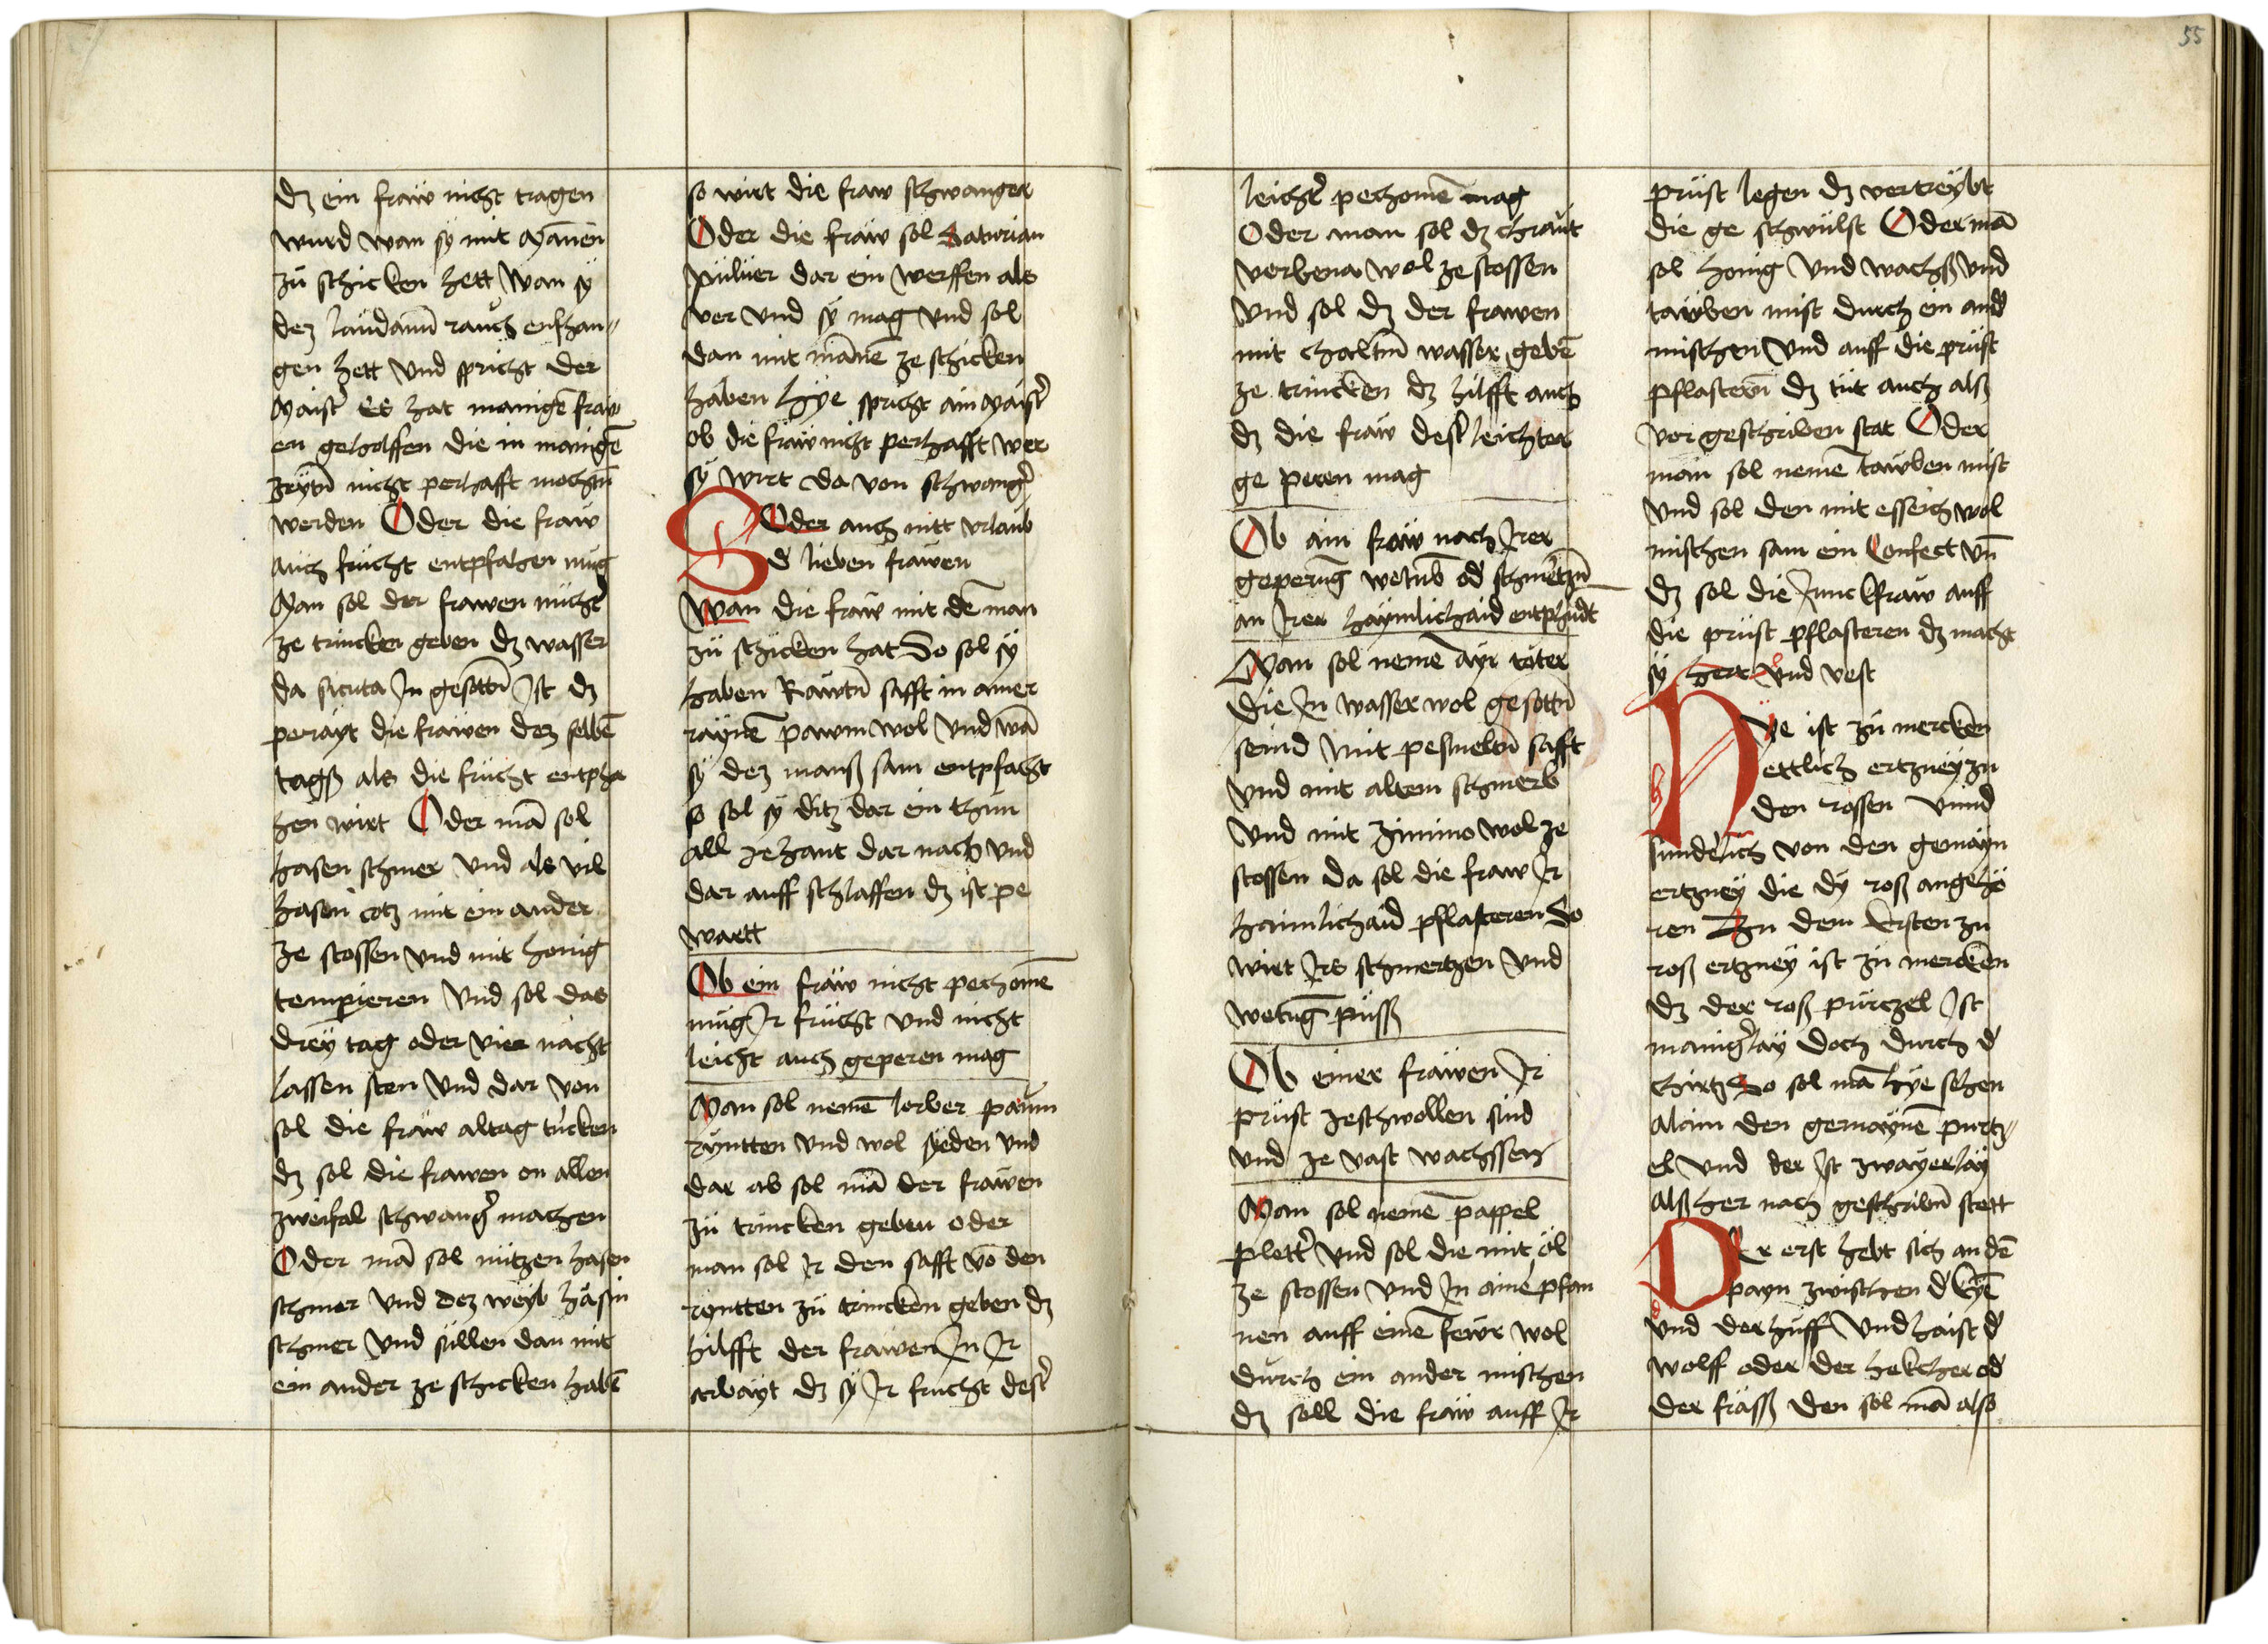 55
dz ein fraw nicht tragen
wurd wan sÿ mit Mānen
zu schicken hett Wan sÿ
dez laudanū rauch enphan„
gen hett Vnd spricht der
Maist̉ Es hat manigē fraw
en geholffen die in manigē
zeÿtn̄ nicht perhafft mochtn̄
werden Oder die fraw
auch frucht entpfahen mug
Man sol der frawen nücht̉
ze trincken geben dz wasser
da sicuta Jn gesottn̄ Jst dz
perayt die frawen dez selbē
tagß als die frücht entpha
hen wirt Oder mā sol
hasen schmer Vnd als vil
hasen cotz mit ein ander
ze stossen Vnd mit honig
tempieren Vnd sol das
dreÿ tag oder vier nächt
lassen sten Vnd dar von
sol die fraw altag tricken
dz sol die frawen on allen
zweifal schwang̉ machen
Oder mā sol nützen hasen
schmer Vnd dez weyb häsin
schmer Vnd süllen dan mit
ein ander ze schicken habē
so wirt die fraw schwanger
Oder die fraw sol Saturian
puluer dar ein werffen als
ver Vnd sÿ mag Vnd sol
dan mit mānē ze schicken
haben Hye spricht ain Maist̉
ob die fraw nicht perhafft wer
sÿ wirt da von schwang̉
Oder auch mitt vrlaub
d̉ lieben frawen
Wan die fraw mit dē man
zu schicken hat So sol sÿ
haben Rawtn̄ safft in ainer
raÿnē pawm wol Vnd wā
sÿ dez manß sam entpfacht
so sol sÿ ditz dar ein thun
all zehant dar nach Vnd
dar auff schlaffen dz ist pe
wartt
Ob ein fraw nicht pechomē
mug Jr frücht Vnd nicht
leicht auch geperen mag
Man sol nemē lorber paum
ryntten Vnd wol syeden Vnd
dar ab sol mā der frawen
zu trincken geben oder
man sol Jr den safft vō den
ryntten zu trincken geben dz
hilfft der frawen Jn Jr
arbayt dz sÿ Jr frucht dest̉
leicht̉ pechomē mag
Oder man sol dz chraut
verbena wol ze stossen
Vnd sol dz der frawen
mit chaltm̄ wasser gebē
ze trincken dz hilfft auch
dz die fraw dest̉ leichter
ge peren mag
Ob ain fraw nach Jrer
geperūg wetūb od̉ schmerczn̄
an Jrer haymlichaid entphindt
Man sol nemē aÿr toter
die Jn wasser wol gesottn̄
seind Mit pesmelbn̄ safft
Vnd mit altem schmerb
Vnd mit zimino wol ze
stossen da sol die fraw Jr
haimlichaid pflasteren So
wirt Jrs schmertzen Vnd
wetūg püsß
Ob einer frawen Jr
prüst zeschwollen sind
Vnd ze vast wachssen
Man sol nemē pappel
plett̉ Vnd sol die mit öl
ze stossen Vnd Jn ainē pfan
nen auff einē fewr wol
durch ein ander mischen
dz soll die fraw auff Jr
prüst legen dz vertreybt
die ge schwülst Oder mā
sol honig Vnd wachß Vnd
tawben mist durch ein and̉
mischen Vnd auff die prüst
pflastern̄ dz tüt auch alß
vor geschriben stat Oder
man sol nemē tawben mist
Vnd sol den mit esseich wol
mischen sam ein Confect vn̄
dz sol die Junckfraw auff
die prüst pflasteren dz macht
sÿ hert Vnd vest
Hÿe ist zu mercken
ettlich ertzneÿ zu
den rossen Vnnd
sunderlich von den gemayn
ertzneÿ die dÿ roß angehö
ren Zu dem Ersten zu
roß ertzneÿ ist zu mercken
dz der roß pürczel Jst
manig̉lay doch durch d̉
chürtz So sol mā hÿe sehen
Alain den gemaynē pürtz„
el Vnd der Jst zwayerlay
Alß her nach geschribn̄ stett
Der erst hebt sich an dē
payn zwischen d̉ kÿē
Vnd der huff Vnd haist d̉
wolff oder der hekcher od̉
der fräsß den sol mā also